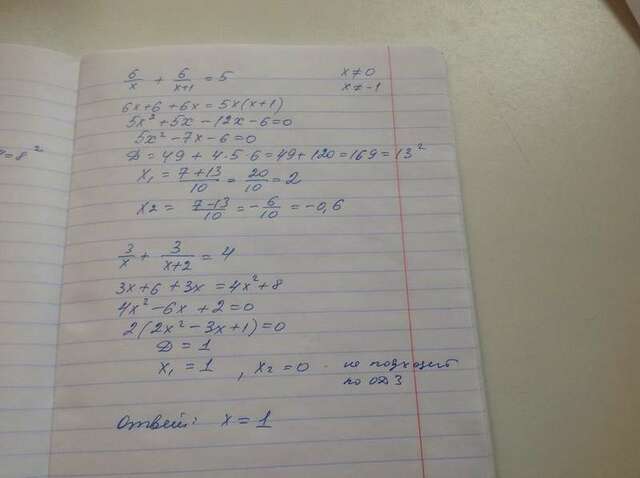 6/x + 6/(x+1) = 5 x≠0
x≠-1
6x+6+6x=5x(x+1)
5x²+5x-12x-6=0
5x²-7x-6=0
D=49+4·5·6=49+120=169=13²
x₁ = (7+13)/10 = 20/10 = 2
x₂ = (7-13)/10 = -6/10 = -0,6
3/x + 3/(x+2) = 4
3x+6+3x=4x²+8
4x²-6x+2=0
2(2x²-3x+1)=0
D=1
x₁=1, x₂=0 - не подходит
по ОДЗ
Ответ: x=1
=8²